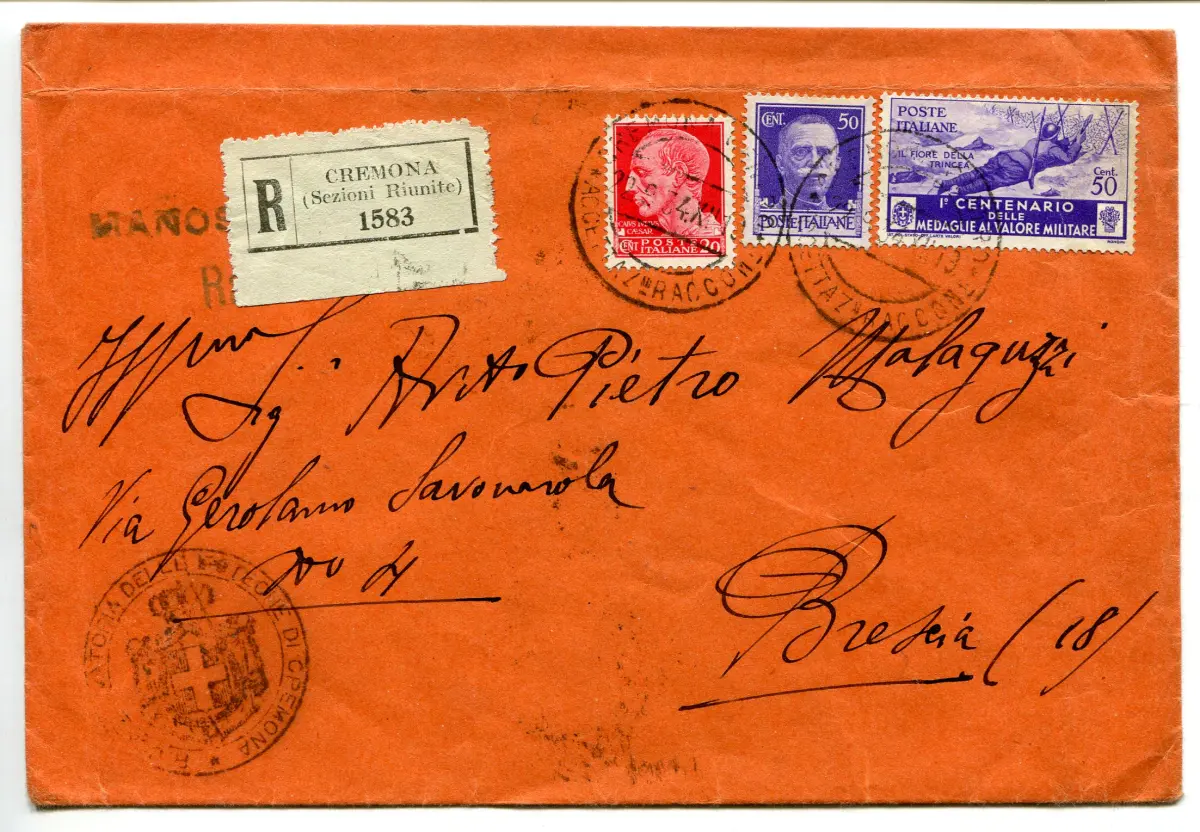 CREMONA
(Sezioni Riunite)
R
1583
MANOS
R
CENT 20
POSTE
ITALIANE
CAESAR
CENT. 50
POSTE ITALIANE
POSTE
ITALIANE
IL FIORE DELLA
TRINCEA
Cent.
50
1º CENTENARIO
DELLE
MEDAGLIE AL VALORE MILITARE
RACCON
Sig. Pietro Malaguzzi
Via Gerolamo Savonarola
No 4
Brescia (18)
DELLE IPOTECHE DI CREMONA